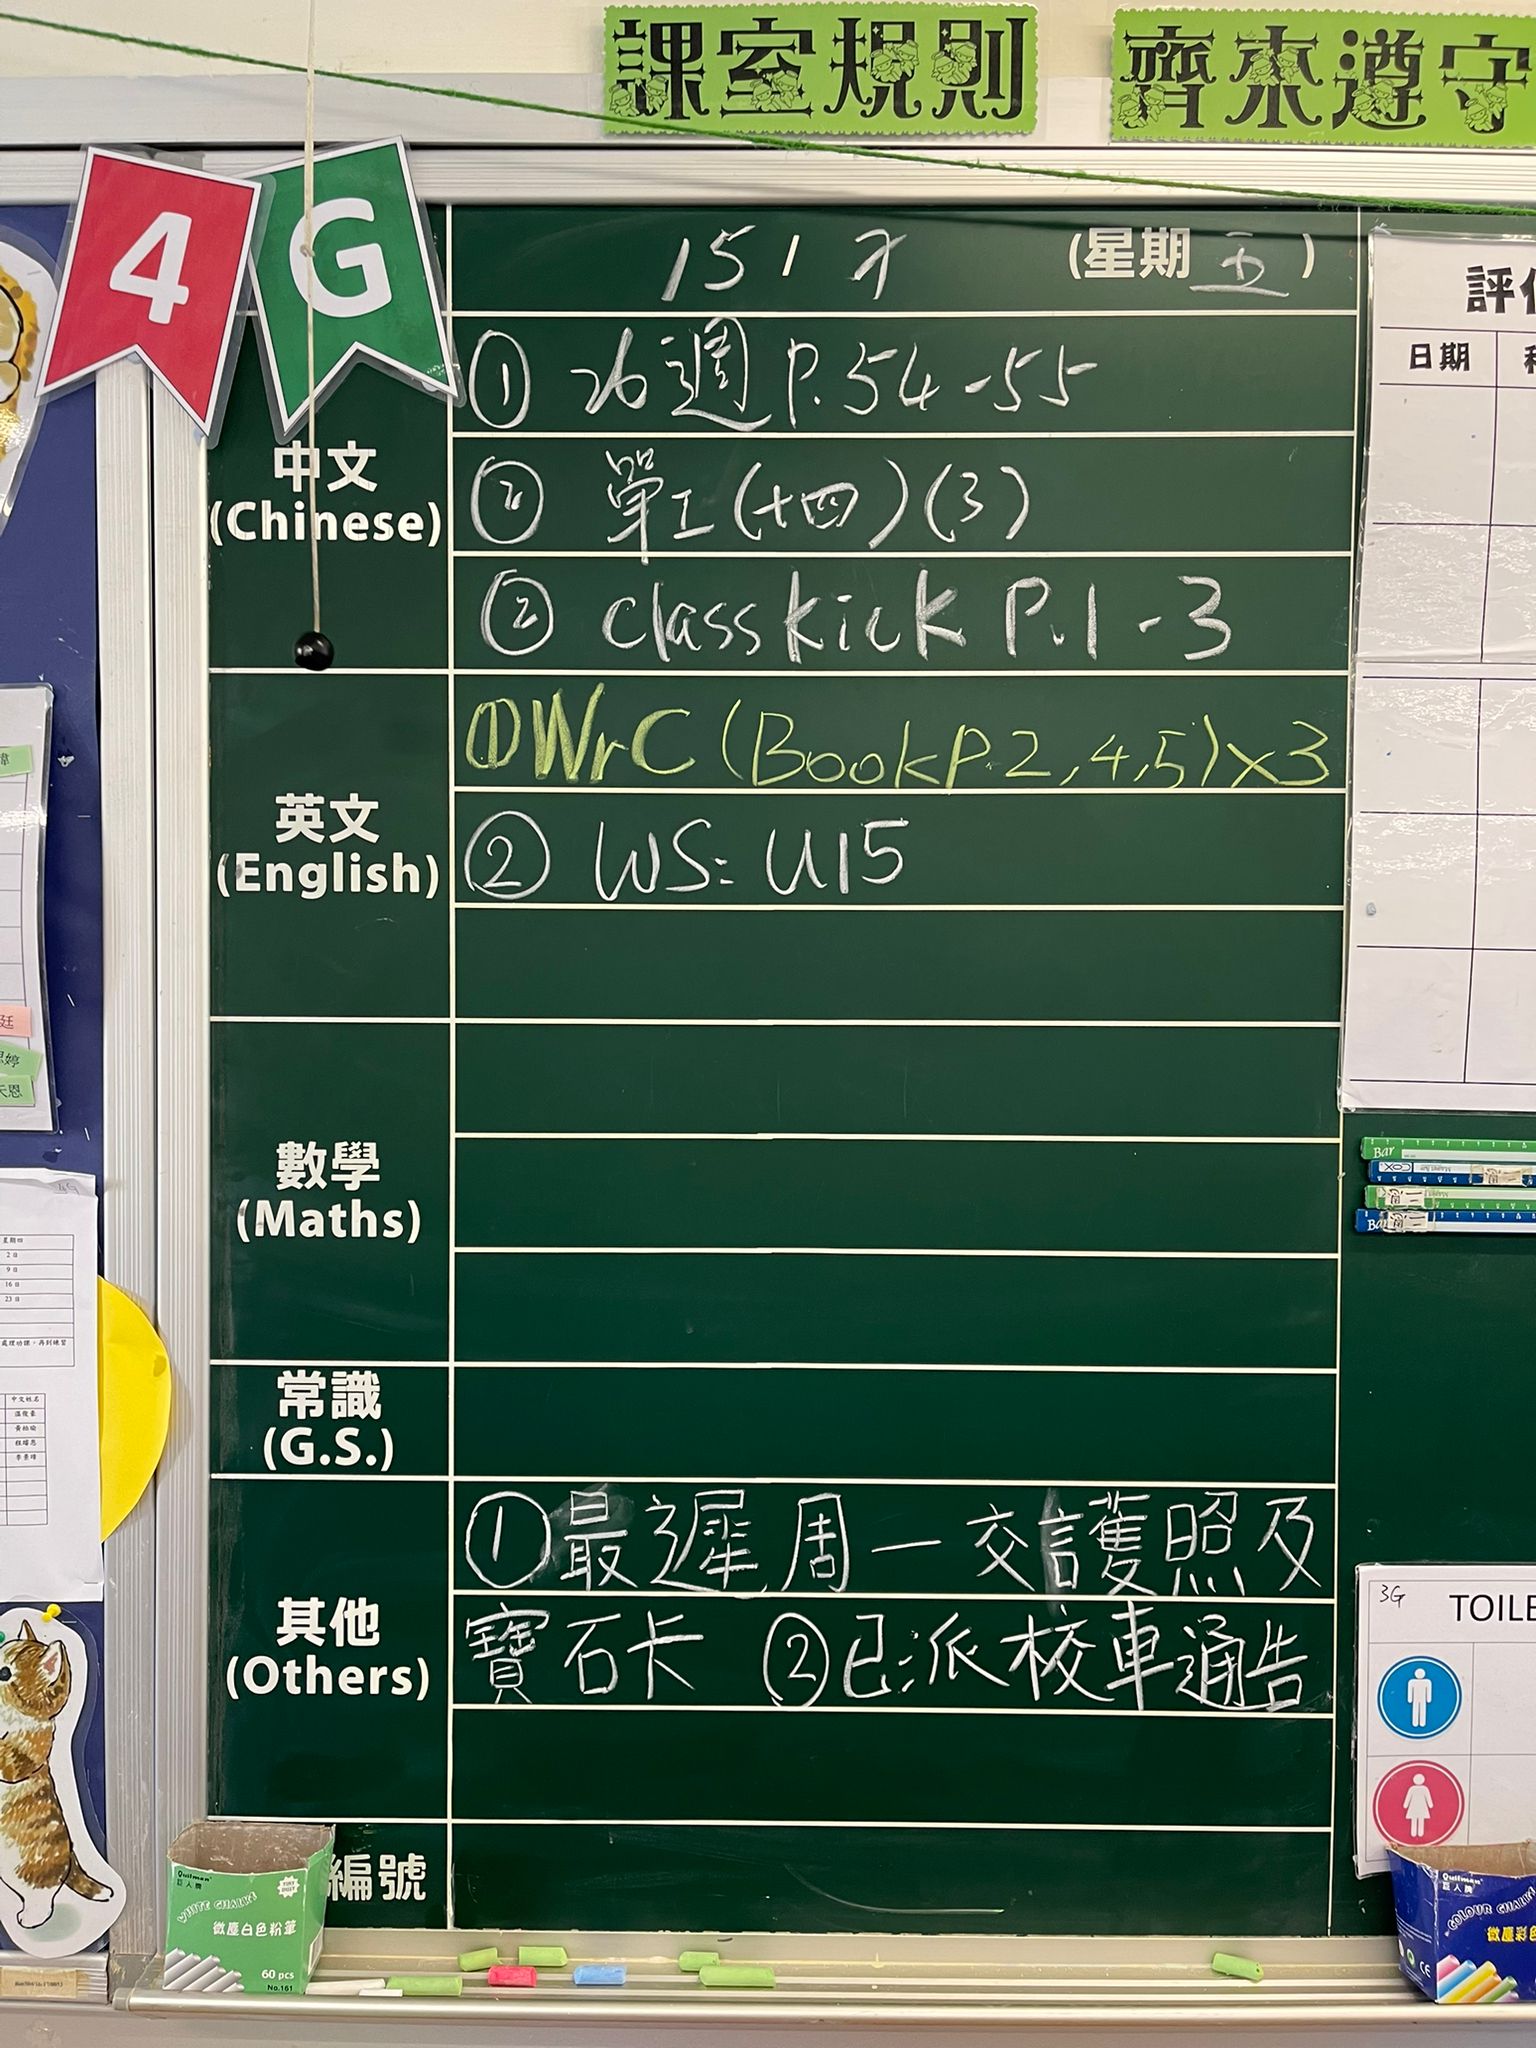 課室規則
齊來遵守
4 G
15 / 5 (星期五)
中文
(Chinese)
① 26週 P.54-55
② 單工(十四)(3)
② classkick P.1-3
英文
(English)
① WrC (Book P.2,4,5)x3
② WS: U15
數學
(Maths)
常識
(G.S.)
其他
(Others)
①最遲周一交護照及
寶石卡 ②已派校車通告
編號
日期
3G
TOILE
Quilman
巨人牌
WHITE CHALKS
微塵白色粉筆
60 pcs
No.161
Quilman
巨人牌
COLOUR CHALK
微塵彩色
CE
星期四
2日
9日
16日
23日
中文姓名
Bar